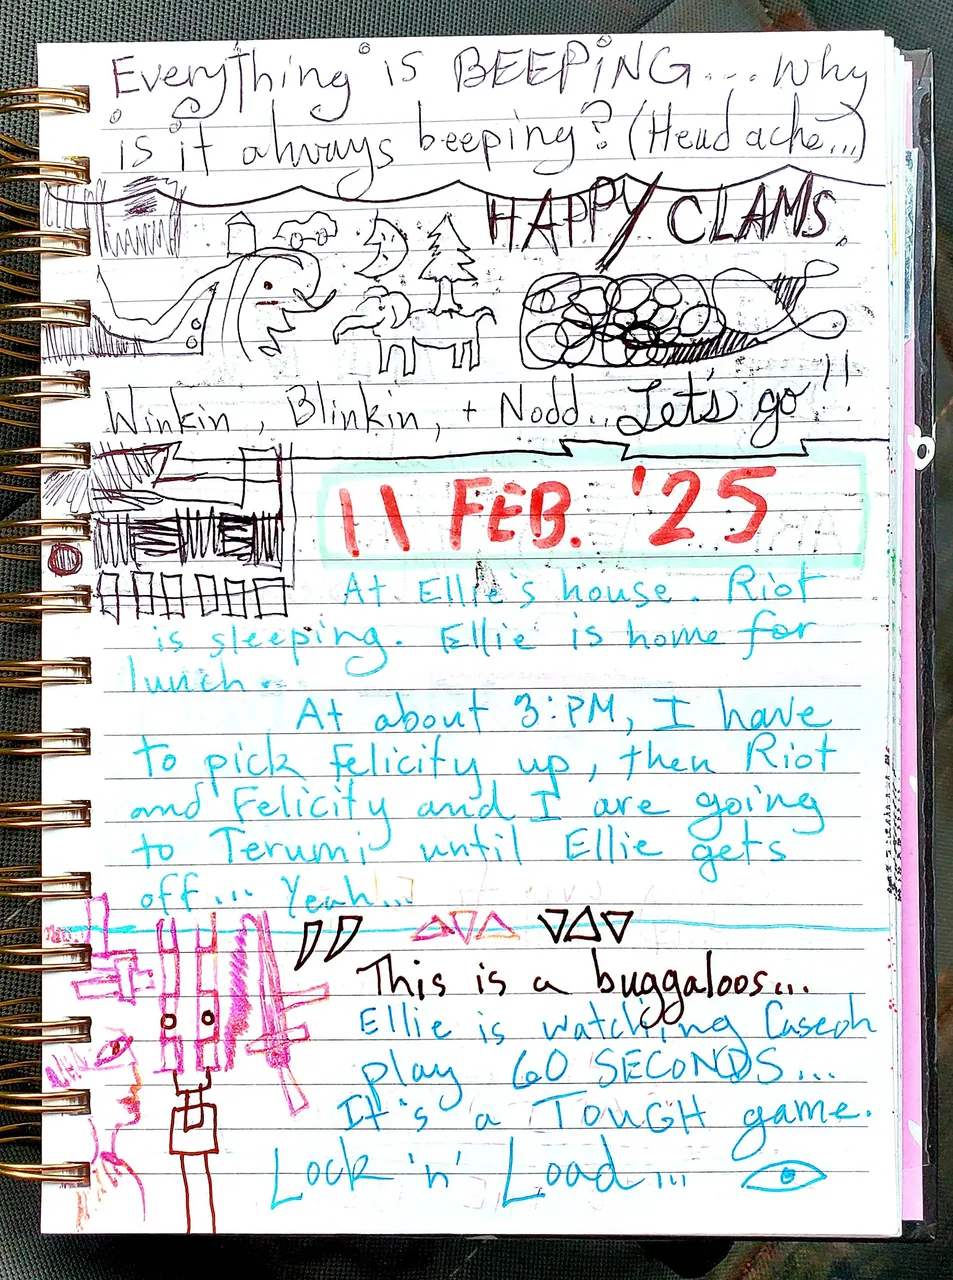 Everything is BEEPING... Why
is it always beeping? (Headache...)
HAPPY CLAMS
Winkin, Blinkin, + Nodd... Let's go!!
11 FEB. '25
At Ellie's house. Riot
is sleeping. Ellie is home for
lunch.
At about 3:PM, I have
to pick Felicity up, then Riot
and Felicity and I are going
to Terumi until Ellie gets
off... Yeah...
This is a buggaloos...
Ellie is watching Caseoh
play 60 SECONDS...
It's a TOUGH game.
Lock 'n' Load...